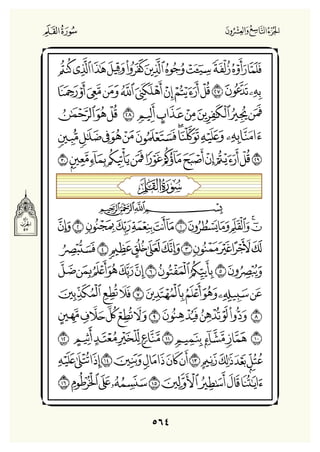 الجزء التاسع والعشرون
سورة القلم
فَلَمَّا رَأَوْهُ زُلْفَةً سِيٓـَٔتْ وُجُوهُ ٱلَّذِينَ كَفَرُوا۟ وَقِيلَ هَٰذَا ٱلَّذِى كُنتُم
بِهِۦ تَدَّعُونَ ٢٧ قُلْ أَرَءَيْتُمْ إِنْ أَهْلَكَنِىَ ٱللَّهُ وَمَن مَّعِىَ أَوْ رَحِمَنَا
فَمَن يُجِيرُ ٱلْكَٰفِرِينَ مِنْ عَذَابٍ أَلِيمٍ ٢٨ قُلْ هُوَ ٱلرَّحْمَٰنُ
ءَامَنَّا بِهِۦ وَعَلَيْهِ تَوَكَّلْنَا ۖ فَسَتَعْلَمُونَ مَنْ هُوَ فِى ضَلَٰلٍ مُّبِينٍ
٢٩ قُلْ أَرَءَيْتُمْ إِنْ أَصْبَحَ مَآؤُكُمْ غَوْرًا فَمَن يَأْتِيكُم بِمَآءٍ مَّعِينٍۭ ٣٠
سُورَةُ القَلَمِ
بِسْمِ ٱللَّهِ ٱلرَّحْمَٰنِ ٱلرَّحِيمِ
نٓ ۚ وَٱلْقَلَمِ وَمَا يَسْطُرُونَ ١ مَآ أَنتَ بِنِعْمَةِ رَبِّكَ بِمَجْنُونٍ ٢ وَإِنَّ
لَكَ لَأَجْرًا غَيْرَ مَمْنُونٍ ٣ وَإِنَّكَ لَعَلَىٰ خُلُقٍ عَظِيمٍ ٤ فَسَتُبْصِرُ
وَيُبْصِرُونَ ٥ بِأَييِّكُمُ ٱلْمَفْتُونُ ٦ إِنَّ رَبَّكَ هُوَ أَعْلَمُ بِمَن ضَلَّ
عَن سَبِيلِهِۦ وَهُوَ أَعْلَمُ بِٱلْمُهْتَدِينَ ٧ فَلَا تُطِعِ ٱلْمُكَذِّبِينَ
٨ وَدُّوا۟ لَوْ تُدْهِنُ فَيُدْهِنُونَ ٩ وَلَا تُطِعْ كُلَّ حَلَّافٍ مَّهِينٍ
١٠ هَمَّازٍ مَّشَّآءٍۭ بِنَمِيمٍ ١١ مَّنَّاعٍ لِّلْخَيْرِ مُعْتَدٍ أَثِيمٍ ١٢
عُتُلٍّۭ بَعْدَ ذَٰلِكَ زَنِيمٍ ١٣ أَن كَانَ ذَا مَالٍ وَبَنِينَ ١٤ إِذَا تُتْلَىٰ عَلَيْهِ
ءَايَٰتُنَا قَالَ أَسَٰطِيرُ ٱلْأَوَّلِينَ ١٥ سَنَسِمُهُۥ عَلَى ٱلْخُرْطُومِ ١٦
٥٦٤